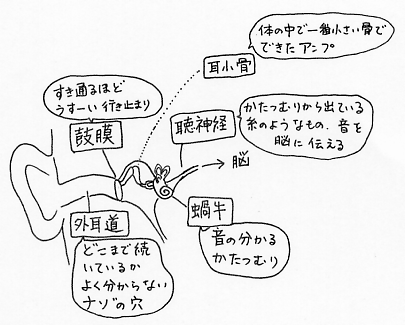 体の中で一番小さい骨で
できたアンプ
耳小骨
すき通るほど
うすーい行き止まり
鼓膜
聴神経
かたつむりから出ている
糸のようなもの。音を
脳に伝える
脳
外耳道
どこまで続
いているか
よく分からない
ナゾの穴
蝸牛
音の分かる
かたつむり